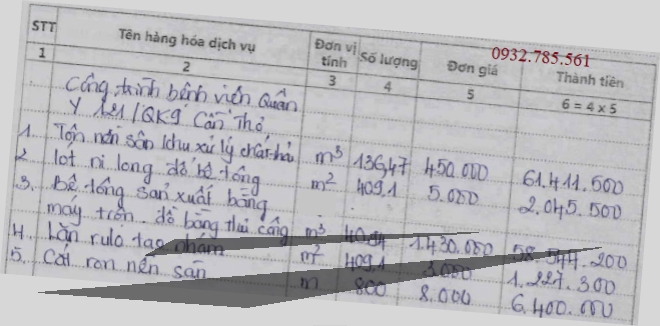 STT Tên hàng hóa dịch vụ Đơn vị tính Số lượng Đơn giá Thành tiền
0932.785.561
1 2 3 4 5 6 = 4 x 5
Công trình bệnh viện Quân
Y 121/QK9 Cần Thơ
1. Tôn nền sân khu xử lý chất thải m³ 136,47 450.000 61.411.500
2 lót ni long đổ bê tông m² 409,1 5.000 2.045.500
3. Bê tông sản xuất bằng
máy trộn đổ bằng thủ công m³ 40,94 1.430.000 58.544.200
4. Lăn rulo tạo nhám m² 409,1 3.000 1.227.300
5. Cắt ron nền sân m 800 8.000 6.400.000